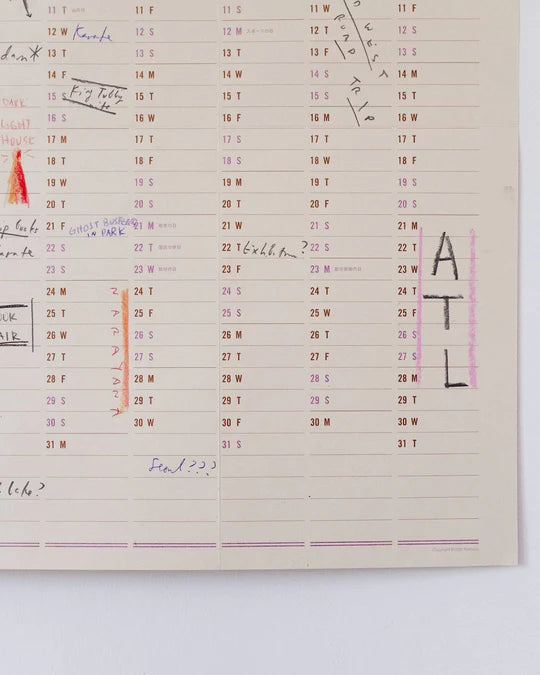 DARK
LIGHT
HOUSE
11 T 山の日
12 W Karate
13 T
14 F
15 S King Tubby
nite
16 S
17 M
18 T
19 W
20 T
21 F GHOST BUSTERS
IN DARK
22 S
23 S
24 M
25 T
26 W
27 T
28 F
29 S
30 S
31 M
11 F
12 S
13 S
14 M
15 T
16 W
17 T
18 F
19 S
20 S
21 M
22 T 国民の休日
23 W 秋分の日
24 T
25 F
26 S
27 S
28 M
29 T
30 W
Seoul???
11 S
12 M スポーツの日
13 T
14 W
15 T
16 F
17 S
18 S
19 M
20 T
21 W
22 T Exhibition?
23 F
24 S
25 S
26 M
27 T
28 W
29 T
30 F
31 S
11 W
12 T
13 F
14 S
15 S
16 M
17 T
18 W
19 T
20 F
21 S
22 S
23 M 勤労感謝の日
24 T
25 W
26 T
27 F
28 S
29 S
30 M
WEST
TRIP
11 F
12 S
13 S
14 M
15 T
16 W
17 T
18 F
19 S
20 S
21 M
22 T
23 W
24 T
25 F
26 S
27 S
28 M
29 T
30 W
31 T
ATL